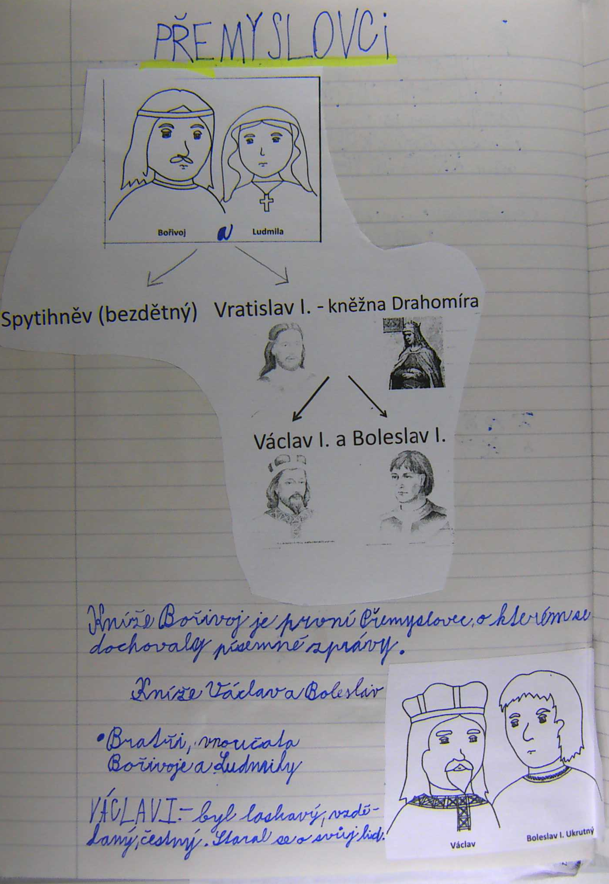 PŘEMYSLOVCI
Bořivoj a Ludmila
Spytihněv (bezdětný) Vratislav I. - kněžna Drahomíra
Václav I. a Boleslav I.
Kníže Bořivoj je první Přemyslovec, o kterém se
dochovaly písemné zprávy.
Kníže Václav a Boleslav
• Bratři, vnoučata
Bořivoje a Ludmily
VÁCLAV I. - byl laskavý, vzdě-
laný, čestný. Staral se o svůj lid.
Václav
Boleslav I. Ukrutný